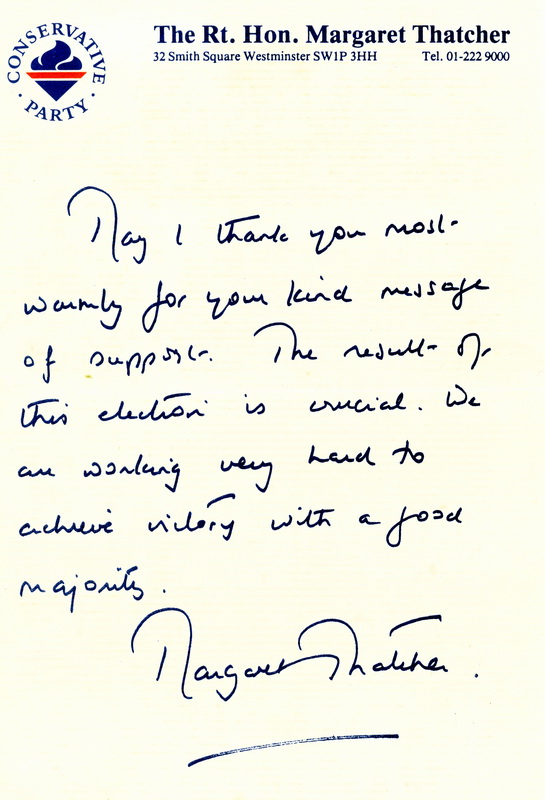 CONSERVATIVE
· PARTY ·
The Rt. Hon. Margaret Thatcher
32 Smith Square Westminster SW1P 3HH Tel. 01-222 9000
May I thank you most
warmly for your kind message
of support. The result of
this election is crucial. We
are working very hard to
achieve victory with a good
majority.
Margaret Thatcher.